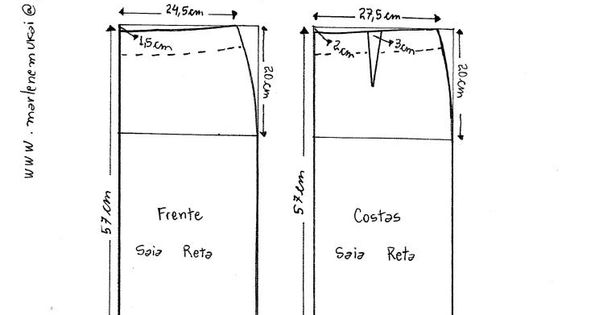 www.marlenemukai@
24,5cm
1,5cm
20cm
57cm
Frente
Saia Reta
27,5cm
2cm
3cm
20cm
57cm
Costas
Saia Reta